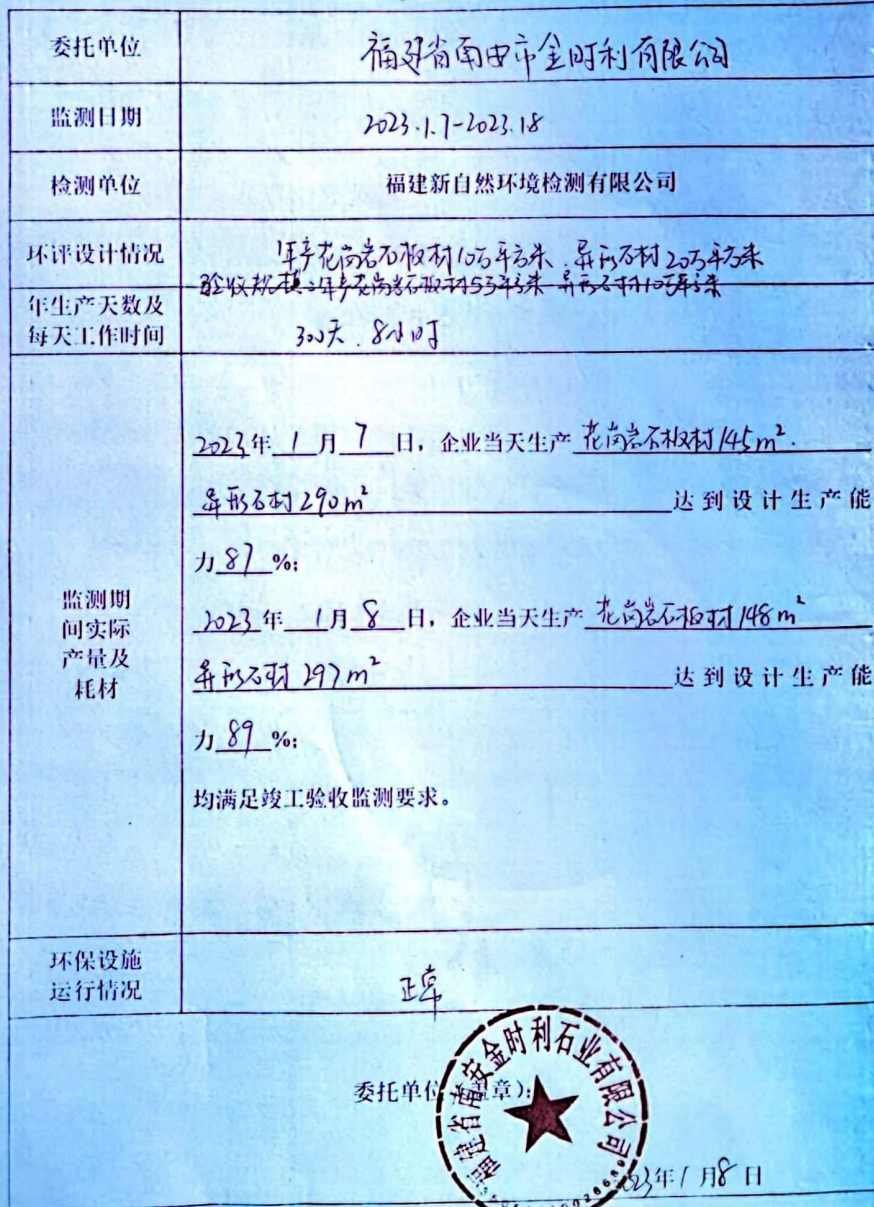 委托单位 福建省南安市金时利有限公司
监测日期 2023.1.7-2023.1.8
检测单位 福建新自然环境检测有限公司
环评设计情况 年产花岗岩石板材10万平方米、异形石材20万平方米
验收规模：年产花岗岩石板材5万平方米 异形石材10万平方米
年生产天数及
每天工作时间 300天、8小时
监测期
间实际
产量及
耗材
2023年 1 月 7 日，企业当天生产 花岗岩石板材145m².
异形石材290m² 达到设计生产能
力 87 %；
2023年 1月 8 日，企业当天生产 花岗岩石板材148m²
异形石材297m² 达到设计生产能
力 89 %；
均满足竣工验收监测要求。
环保设施
运行情况 正常
委托单位（盖章）：
福建省南安金时利石业有限公司
23年1月8日